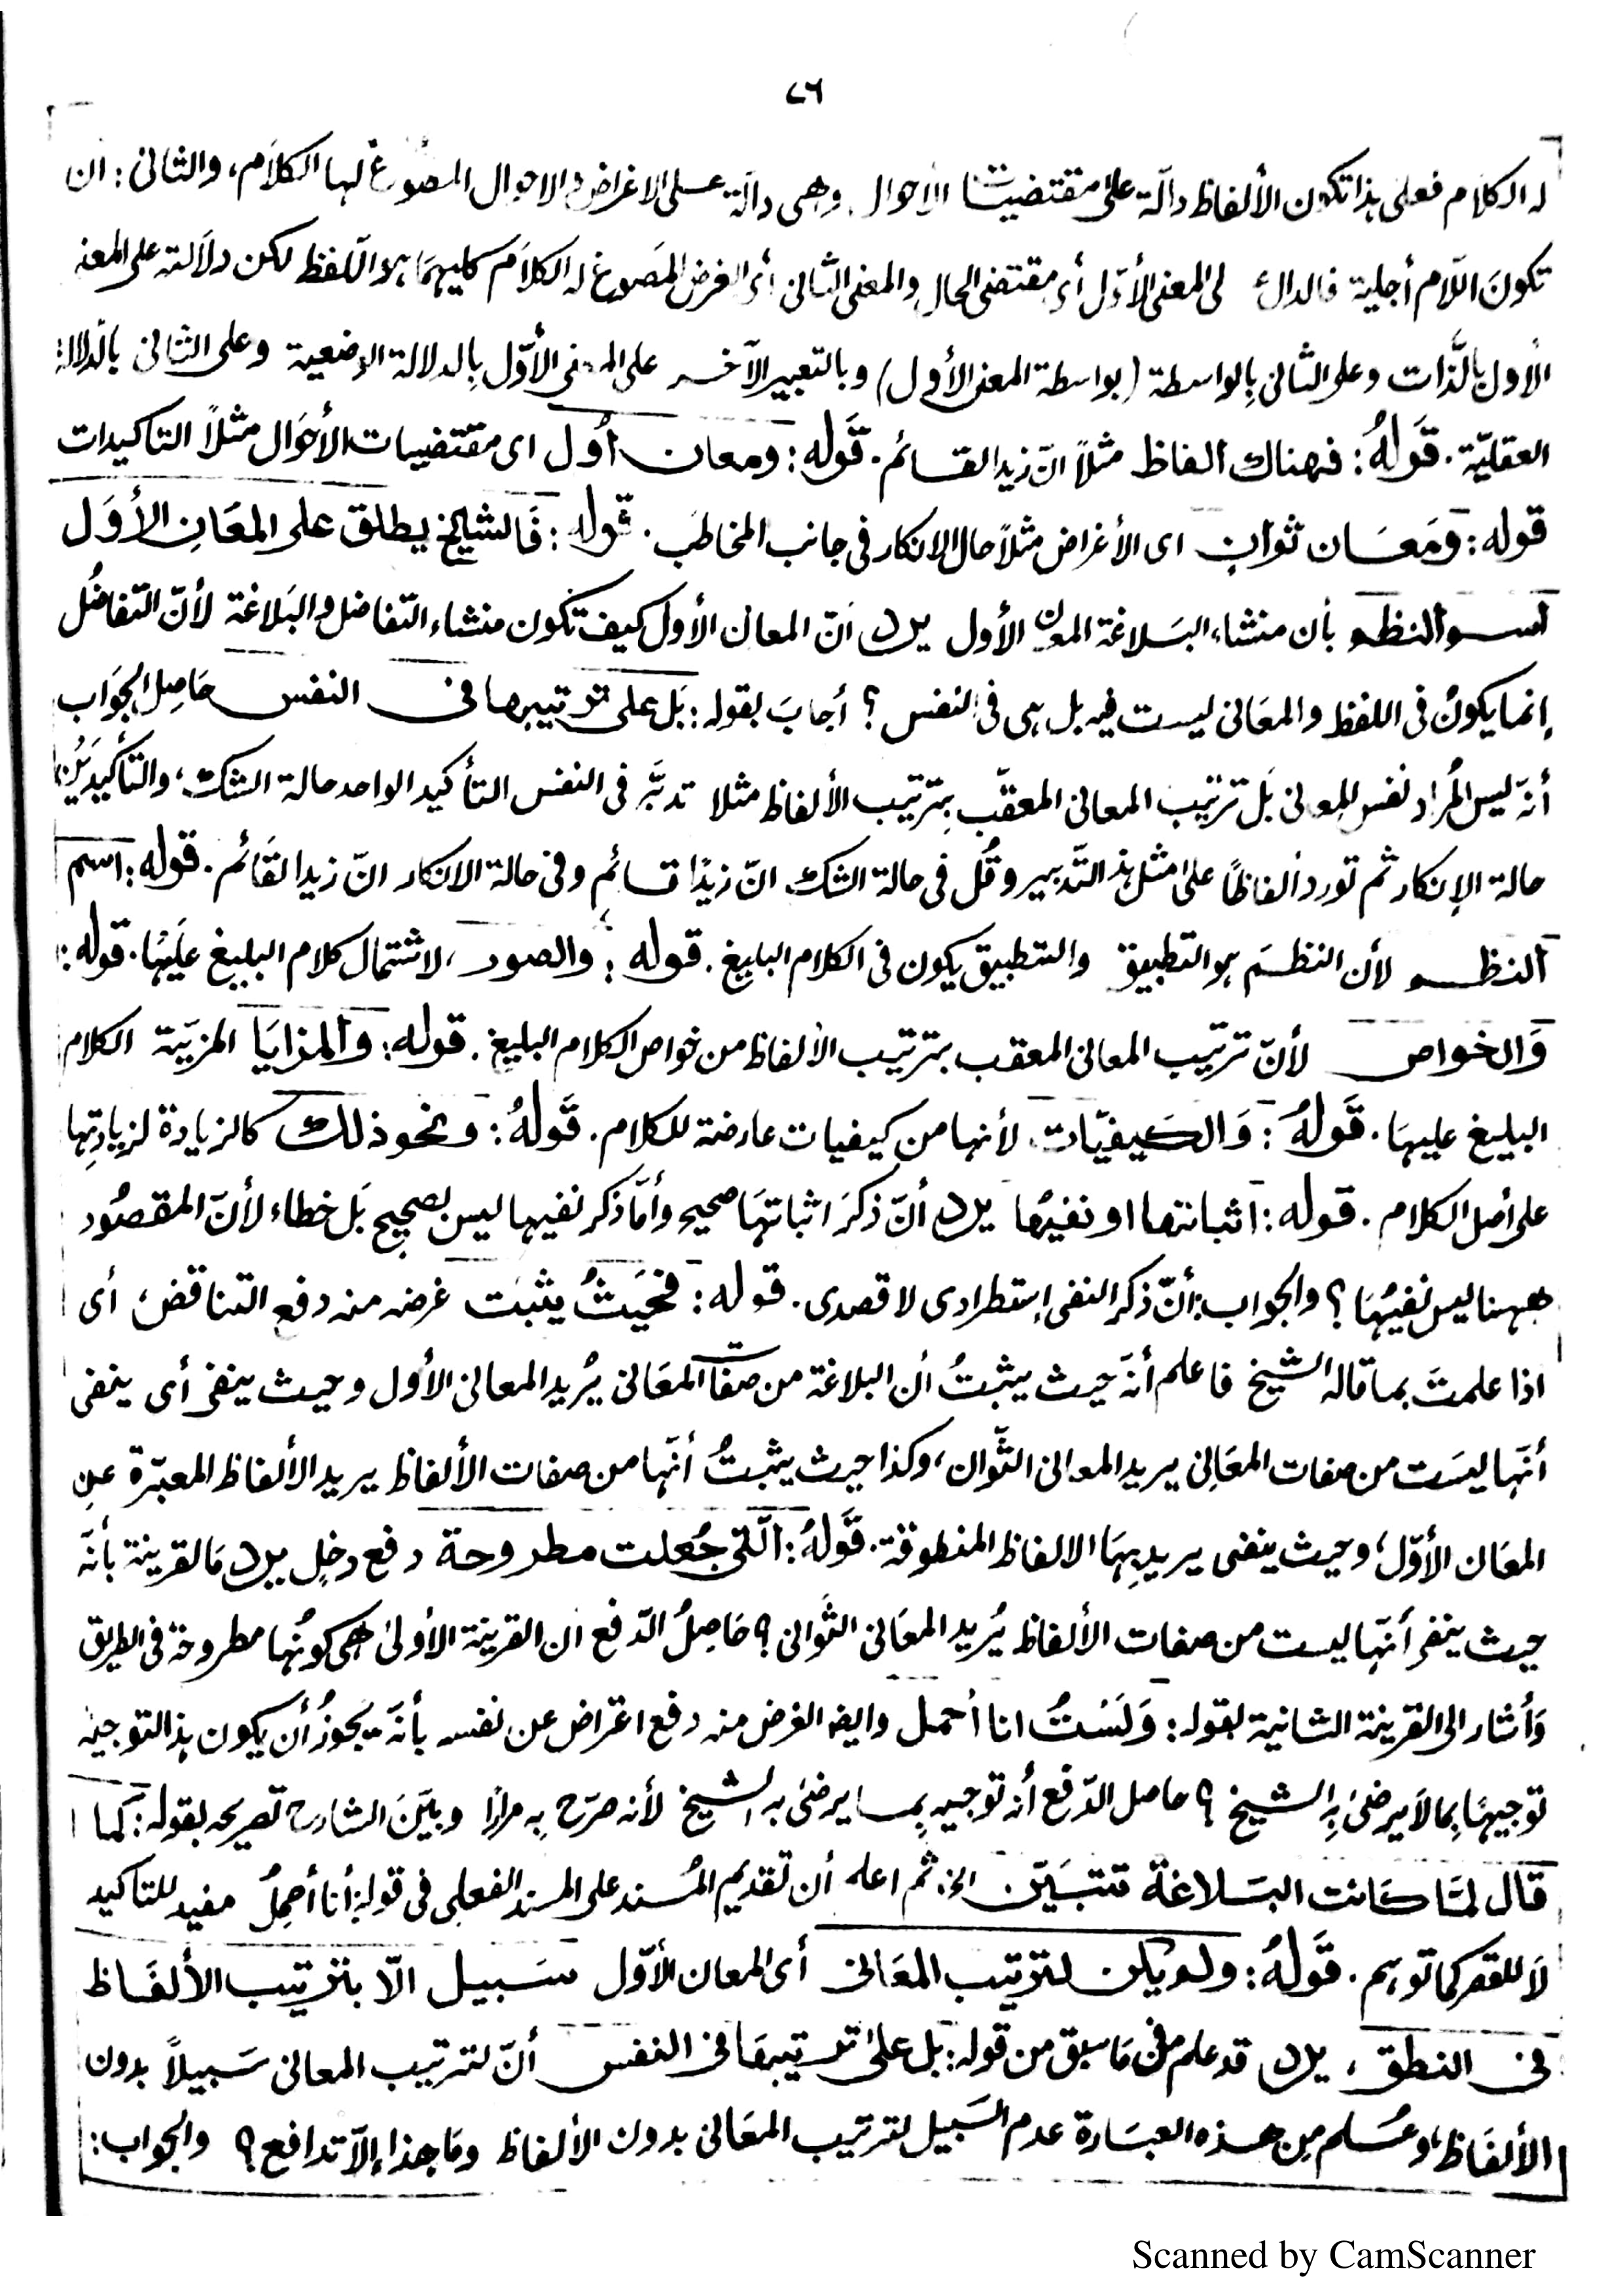 ٧٦
له الكلام فعلى هذا تكون الألفاظ دالّة على مقتضيات الاحوال وهى دالّة على الاغراض والاحوال المصوغ لها الكلام، والثانى: ان
تكون اللّام أجلية فالدال على المعنى الأوّل أى مقتضى الحال والمعنى الثانى أى الغرض المصوغ له الكلام كليهما هو اللّفظ لكن دلالته على المعنى
الأول بالذّات وعلى الثانى بالواسطة (بواسطة المعنى الأول) وبالتعبير الآخر على المعنى الأوّل بالدلالة الوضعية وعلى الثانى بالدلالة
العقليّة. قوله: فهناك الفاظ مثلاً انّ زيدا لقائم. قوله: ومعان أول اى مقتضيات الأحوال مثلاً التاكيدات
قوله: ومعان ثوان اى الأغراض مثلاً حال الانكار فى جانب المخاطب. قوله: فالشيخ يطلق على المعان الأول
اسم النظم بأن منشاء البلاغة المعان الأول يرد انّ المعان الأول كيف تكون منشاء التفاضل والبلاغة لأنّ التفاضل
إنما يكون فى اللفظ والمعانى ليست فيه بل هى فى النفس؟ أجاب بقوله: بل على ترتيبها فى النفس حاصل الجواب
أنّه ليس المراد نفس المعانى بل ترتيب المعانى المعقّب بترتيب الألفاظ مثلا تدبّر فى النفس التأكيد الواحد حالة الشك، والتأكيدين
حالة الإنكار ثم تورد ألفاظاً على مثل هذا التّدبير وقُل فى حالة الشك انّ زيدًا قائم وفى حالة الانكار انّ زيدا لقائم. قوله: اسم
النظم لأن النظم هو التطبيق والتطبيق يكون فى الكلام البليغ. قوله: والصور، لاشتمال كلام البليغ عليها. قوله:
والخواص لأنّ ترتيب المعانى المعقب بترتيب الألفاظ من خواص الكلام البليغ. قوله: والمزايا المزيّة الكلام
البليغ عليها. قوله: والكيفيّات لأنها من كيفيات عارضة للكلام. قوله: ونحو ذلك كالزيادة لزيادتها
على أصل الكلام. قوله: اثباتها او نفيها يرد أنّ ذكر اثباتها صحيح وأمّا ذكر نفيها ليس بصحيح بل خطاء لأنّ المقصود
ههنا ليس نفيها؟ والجواب: أنّ ذكر النفى إستطرادى لا قصدى. قوله: فحيث يثبت غرضه منه دفع التناقض أى
اذا علمت بما قاله الشيخ فاعلم أنّه حيث يثبت أن البلاغة من صفات المعانى يريد المعانى الأول وحيث ينفى أى ينفى
أنّها ليست من صفات المعانى يريد المعانى الثّوان، وكذا حيث يثبت أنّها من صفات الألفاظ يريد الألفاظ المعبّرة عن
المعان الأوّل، وحيث ينفى يريد بها الالفاظ المنطوقة. قوله: الّتى جُعلت مطروحة دفع دخل يرد ما القرينة بأنّه
حيث ينفى أنّها ليست من صفات الألفاظ يُريد المعانى الثّوانى؟ حاصل الدّفع ان القرينة الأولى هى كونها مطروحة فى الطريق
وأشار الى القرينة الثانية بقوله: ولستُ انا أحمل وايضا الغرض منه دفع اعتراض عن نفسه بأنّه يجوز أن يكون هذا التوجيه
توجيهًا بما لا يرضى به الشيخ؟ حاصل الدّفع أنه توجيه بما يرضى به الشيخ لأنه صرّح به مرارًا وبيّن الشارح تصريحه بقوله: كما
قال لمّا كانت البلاغة تتبيّن الخ. ثم اعلم أن تقديم المُسند على المسند الفعلى فى قوله: أنا أحملُ مفيد للتاكيد
لا للقصر كما توهم. قوله: ولم يكن لترتيب المعانى أى المعان الأوّل سبيل الّا بترتيب الألفاظ
فى النطق، يرد قد علم فى ما سبق من قوله: بل على ترتيبها فى النفس أنّ لترتيب المعانى سبيلاً بدون
الألفاظ، وعُلم من هذه العبارة عدم السّبيل لترتيب المعانى بدون الألفاظ وما هذا إلّا تدافع؟ والجواب:
Scanned by CamScanner